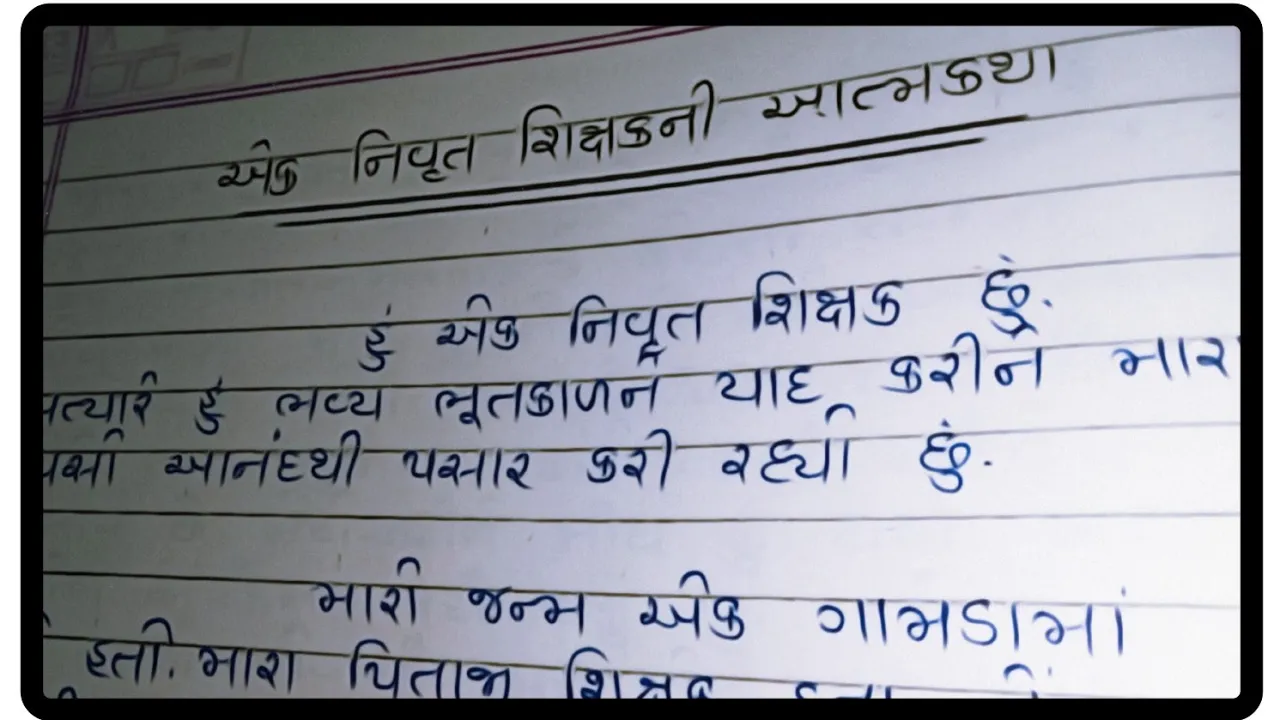 એક નિવૃત શિક્ષકની આત્મકથા
હું એક નિવૃત શિક્ષક છું.
અત્યારે હું ભવ્ય ભૂતકાળને યાદ કરીને મારા
આનંદથી પસાર કરી રહ્યો છું.
મારો જન્મ એક ગામડામાં
હતો. મારા પિતાજી શિક્ષક